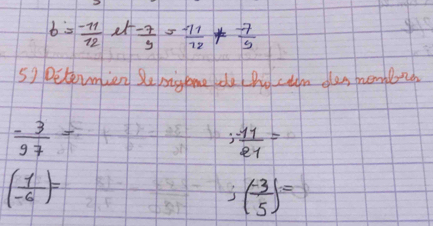 b = -11/12 et -7/9 = -11/12 * -7/9
5) Détermier le signe de chacun des nombre
-3/97 = ; -11/21 =
(1/-6) = ; (-3/5) =